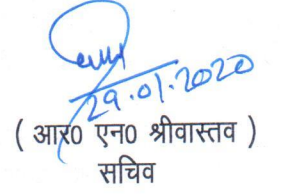 29.01.2020
( आर0 एन0 श्रीवास्तव )
सचिव